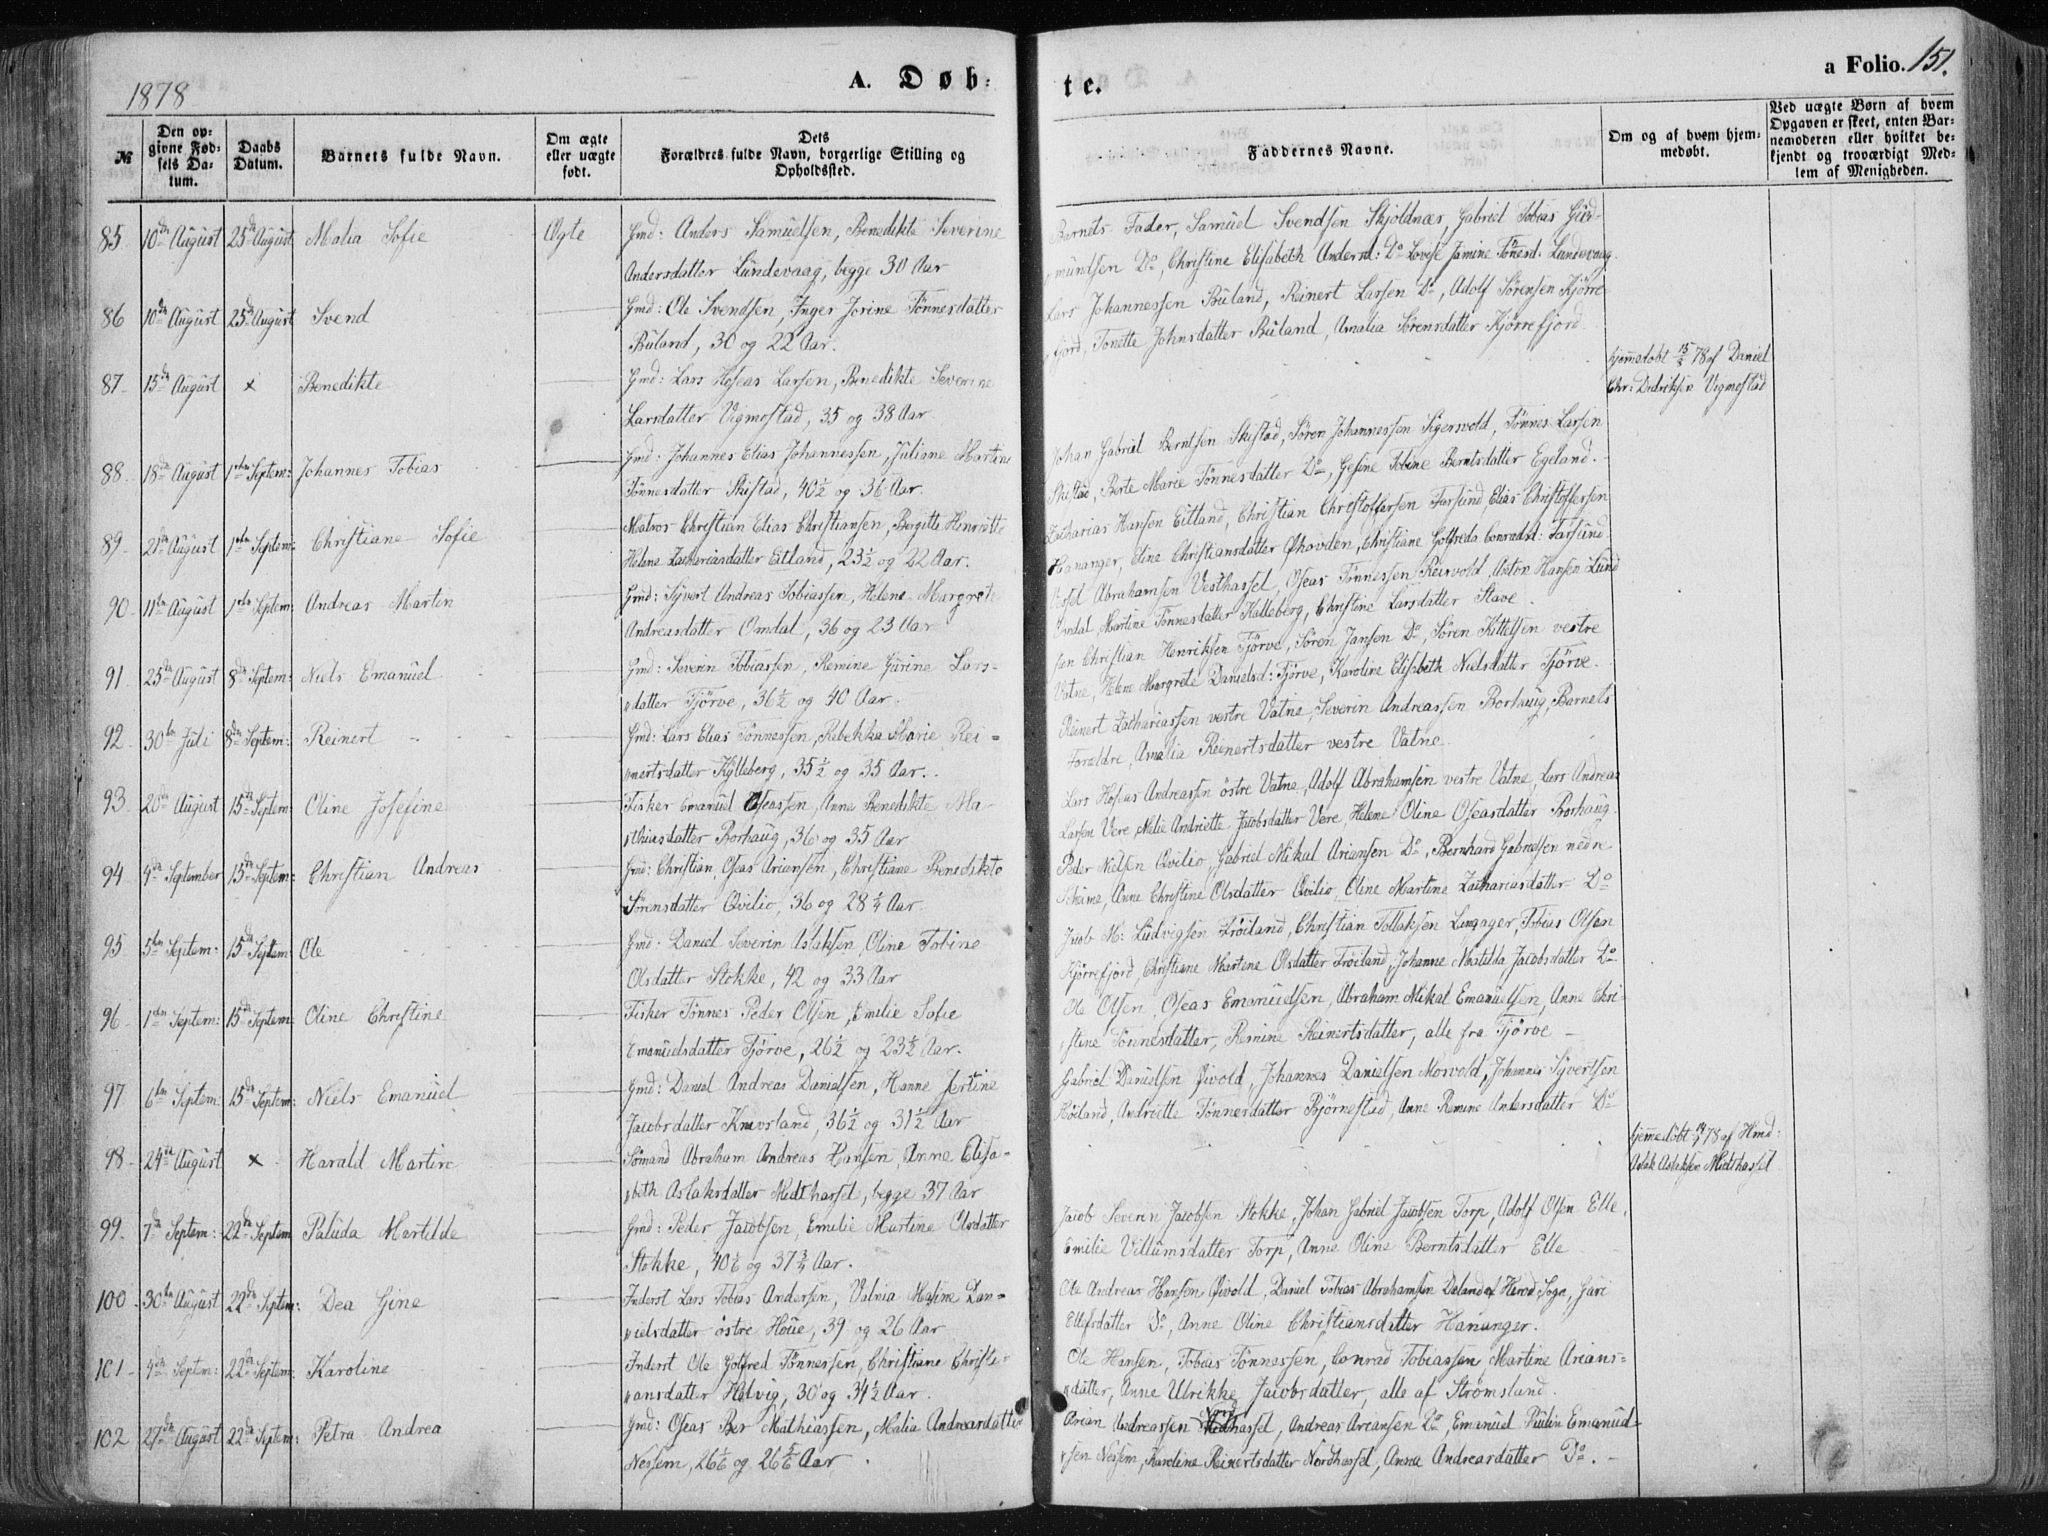 1878
A. Døb-
te.
a Folio. 151.
№
Den opgivne Fødsels Datum.
Daabs Datum.
Barnets fulde Navn.
Om ægte eller uægte født.
Dets Forældres fulde Navn, borgerlige Stilling og Opholdssted.
Faddernes Navne.
Om og af hvem hjemmedøbt.
Ved uægte Børn af hvem Opgaven er skeet, enten Barnemoderen eller hvilket bekjendt og troværdigt Medlem af Menigheden.
85 10de August 25de August Malia Sofie Ægte Gmd: Anders Samuelsen, Benedikte Severine
Andersdatter Lundevaag, begge 30 Aar
Barnets Fader, Samuel Svendsen Skjoldnæs, Gabriel Tobias Gud-
mundsen Do, Christine Elisabeth Andersd: Do Lovise Jamine Tönesd. Lundevaag
86 10de August 25de August Svend Gmd: Ole Svendsen, Inger Jorine Tönnesdatter
Buland, 30 og 22 Aar.
Lars Johannessen Buland, Reinert Larsen Do, Adolf Sörensen Kjörre-
fjord, Tonette Johnsdatter Buland, Amalia Sörensdatter Kjörrefjord
87 15de August x Benedikte Gmd: Lars Hoseas Larsen, Benedikte Severine
Larsdatter Vigmostad, 35 og 38 Aar
hjemmedöbt 15/8 78 af Daniel
Chr: Dedriksen Vigmostad
88 18de August 1ste Septem: Johannes Tobias Gmd: Johannes Elias Johannessen, Juliane Martine
Tönnesdatter Skistad, 40½ og 36 Aar.
Johan Gabriel Berntsen Skistad, Sören Johannessen Sigersvold, Tönnes Larsen
Skistad, Berte Marie Tönnesdatter Do, Gesine Tobine Berntsdatter Egeland.
89 21de August 1ste Septem: Christiane Sofie Matros Christian Elias Christiansen, Birgitte Henriette
Helene Zachariasdatter Eitland, 23½ og 22 Aar.
Zacharias Hansen Eitland, Christian Christoffersen Farsund, Elias Christoffersen
Hananger, Eline Christiansdatter Öhovden, Christiane Golfreda Conradsd: Farsund.
90 11te August 1ste Septem: Andreas Martin Gmd: Sijvert Andreas Tobiassen, Helene Margrete
Andreasdatter Omdal, 36 og 23 Aar
Abrahamsen Vesthassel, Oseas Tönnessen Reirvold, Anton Hansen Lund
Omdal, Martine Tönnesdatter Kalleberg, Christine Larsdatter Stave
91 25de August 8de Septem: Niels Emanuel Gmd: Severin Tobiassen, Remine Gurine Lars-
datter Tjörve, 36½ og 40 Aar.
Christian Henriksen Tjörve, Sören Jansen Do, Sören Kittelsen vestre
Vatne, Helene Margrete Danielsd: Tjörve, Karoline Elisbeth Nielsdatter Tjörve.
92 30te Juli 8de Septem: Reinert Gmd: Lars Elias Tönnessen, Rebekka Marie Rei-
nertsdatter Kylleberg, 35½ og 35 Aar.
Reinert Zachariassen vestre Vatne, Severin Andreassen Borhaug, Barnets
Foraldre, Amalia Reinertsdatter vestre Vatne
93 20de August 15de Septem: Oline Josefine Fisker Emanuel Oseassen, Anne Benedikte Ma-
thiasdatter Borhaug, 36 og 35 Aar
Lars Hoseas Andreassen östre Vatne, Adolf Abrahamsen vestre Vatne, Lars Andreas
Larsen Vere, Melie Andriette Jacobsdatter Vere Helene Oline Oseasdatter Borhaug
94 4de September 15de Septem: Christian Andreas Gmd: Christian Oseas Ariansen, Christiane Benedikte
Sörensdatter Qvilio, 36 og 28¼ Aar.
Peder Nielsen Qvilio, Gabriel Mikal Ariansen Do, Bernhard Gabrielsen nedn
Skeime, Anne Christine Olsdatter Qvilio, Oline Martine Zachariasdatter Do
95 5te Septem: 15de Septem: Ole Gmd: Daniel Severin Aslaksen, Oline Tobine
Olsdatter Stokke, 42 og 33 Aar
Jacob M: Ludvigsen Fröiland, Christian Tollaksen Lingager, Tobias Olsen
Kjörrefjord, Christiane Martene Olsdatter Fröiland, Johanne Matilda Jacobsdatter Do
96 1ste Septem: 15de Septem: Oline Christine Fisker Tönnes Peder Olsen, Emilie Sofie
Emanuelsdatter Tjörve, 26½ og 23½ Aar.
Ole Olsen, Oseas Emanuelsen, Abraham Mikal Emanuelsen, Anne Chri-
stine Tönnesdatter, Remine Reinertsdatter, alle fra Tjörve
97 6te Septem 15de Septem: Niels Emanuel Gmd: Daniel Andreas Danielsen, Hanne Jertine
Jacobsdatter Knivsland, 36½ og 31½ Aar
Gabriel Danielsen Öivold, Johannes Danielsen Mosvold, Johannes Sijvertsen
Höiland, Andriette Tönnesdatter Björnestad, Anne Remine Andersdatter Do
98 24de August x Harald Martin Sömand Abraham Andreas Hansen, Anne Elisa-
beth Aslaksdatter Midthassel, begge 37 Aar
hjemmedöbt 78 af Hmd:
Aslak Aslaksen Midthassel
99 7de Septem: 22de Septem Paluda Martilde Gmd: Peder Jacobsen, Emilie Martine Olsdatter
Stokke, 40 og 37¾ Aar.
Jacob Severin Jacobsen Stokke, Johan Gabriel Jacobsen Torp, Adolf Olsen Elle,
Emilie Villumsdatter Torp, Anne Oline Berntsdatter Elle
100 30te August 22de Septem: Dea Gine Inderst Lars Tobias Andersen, Valnia Masine Dan-
ielsdatter östre Houe, 39 og 26 Aar
Ole Andreas Hansen Öivold, Daniel Tobias Abrahamsen Daland af Herad Sogn, Guri
Ellefsdatter Do, Anne Oline Christiansdatter Hananger.
101 4de Septem: 22de Septem: Karoline Inderst Ole Golfred Tönnessen, Christiane Christi-
ansdatter Helvig, 30 og 34½ Aar.
Ole Hansen, Tobias Tönnessen, Conrad Tobiassen, Martine Arians-
datter, Anne Ulrikke Jacobsdatter, alle af Strömsland.
102 27de August 22de Septem: Petra Andrea Gmd: Oseas Ber Mathiassen, Malia Andreasdatter
Nessem, 26 og 26 Aar
Arian Andreassen Nordhassel, Andreas Ariansen Do, Emanuel Paulin Emanuel-
sen Nessem, Karoline Reinertsdatter Nordhassel, Anna Andreasdatter Do.